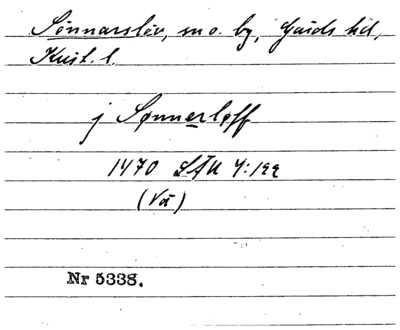 Sönnarslöv, sn o. by, Gärds hd,
Krist. l.
j Sønnerløff
1470 LÄU 4:199
(Vä)
Nr 5338.